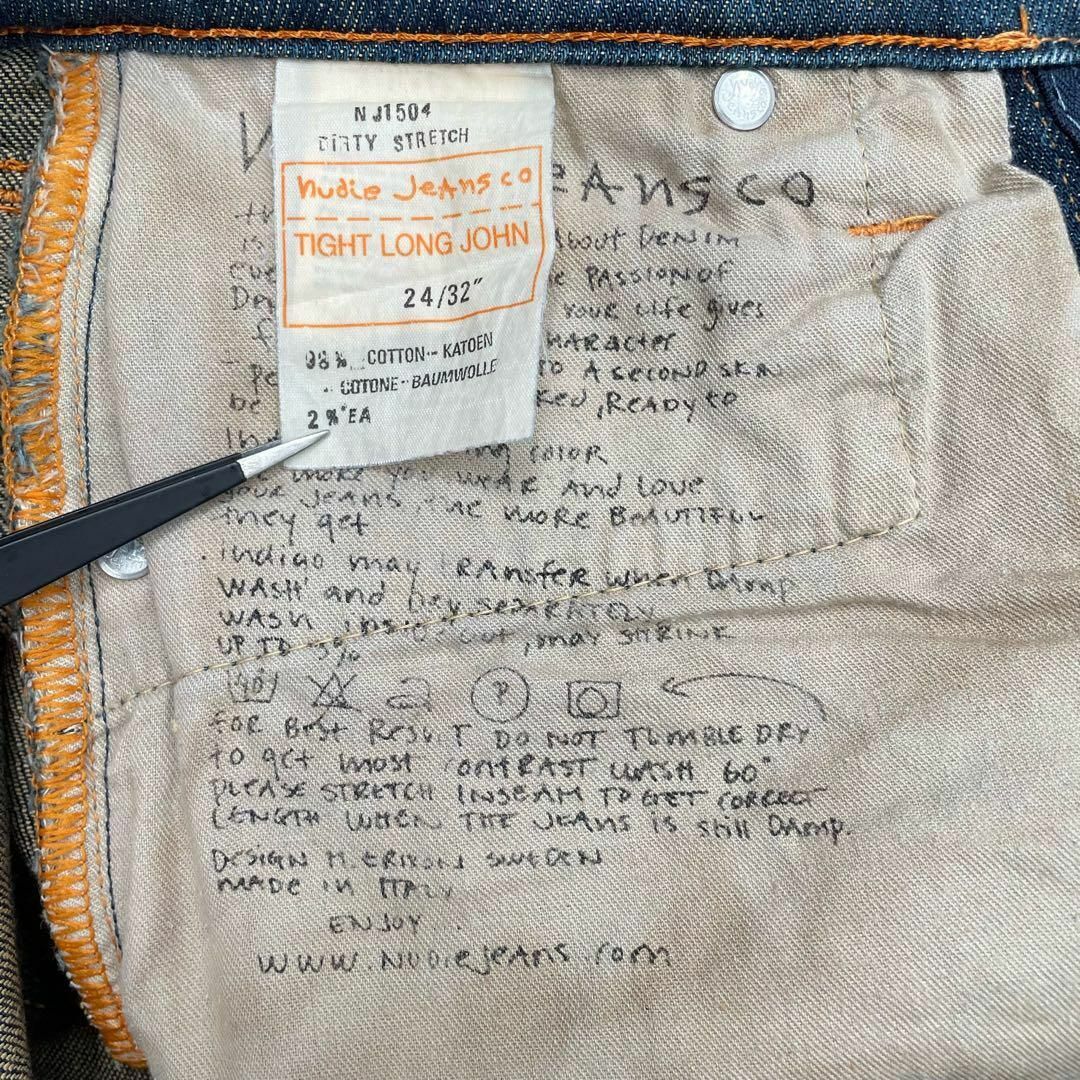 NJ1504
DIRTY STRETCH
nudie Jeans co
TIGHT LONG JOHN
24/32"
98% COTTON - KATOEN
COTONE - BAUMWOLLE
2% EA
Jeans co
is about Denim
PASSION OF
Your Life gives
CHARACTER
TO A SECOND SKIN
be READY to
COLOR
THE MORE YOU WEAR AND LOVE
YOUR JEANS THE MORE BEAUTIFUL
they get
. Indigo may TRANSFER WHEN DAMP
WASH and DRY SEPARATELY
WASH inside out, may SHRINK
UP TO 3%
40
P
FOR BEST RESULT DO NOT TUMBLE DRY
TO get most CONTRAST WASH 60°
PLEASE STRETCH INSEAM TO GET CORRECT
LENGTH WHEN THE JEANS IS still DAMP.
DESIGN M. ERIXSON SWEDEN
MADE in ITALY
ENJOY
WWW.NUDIEJEANS.COM